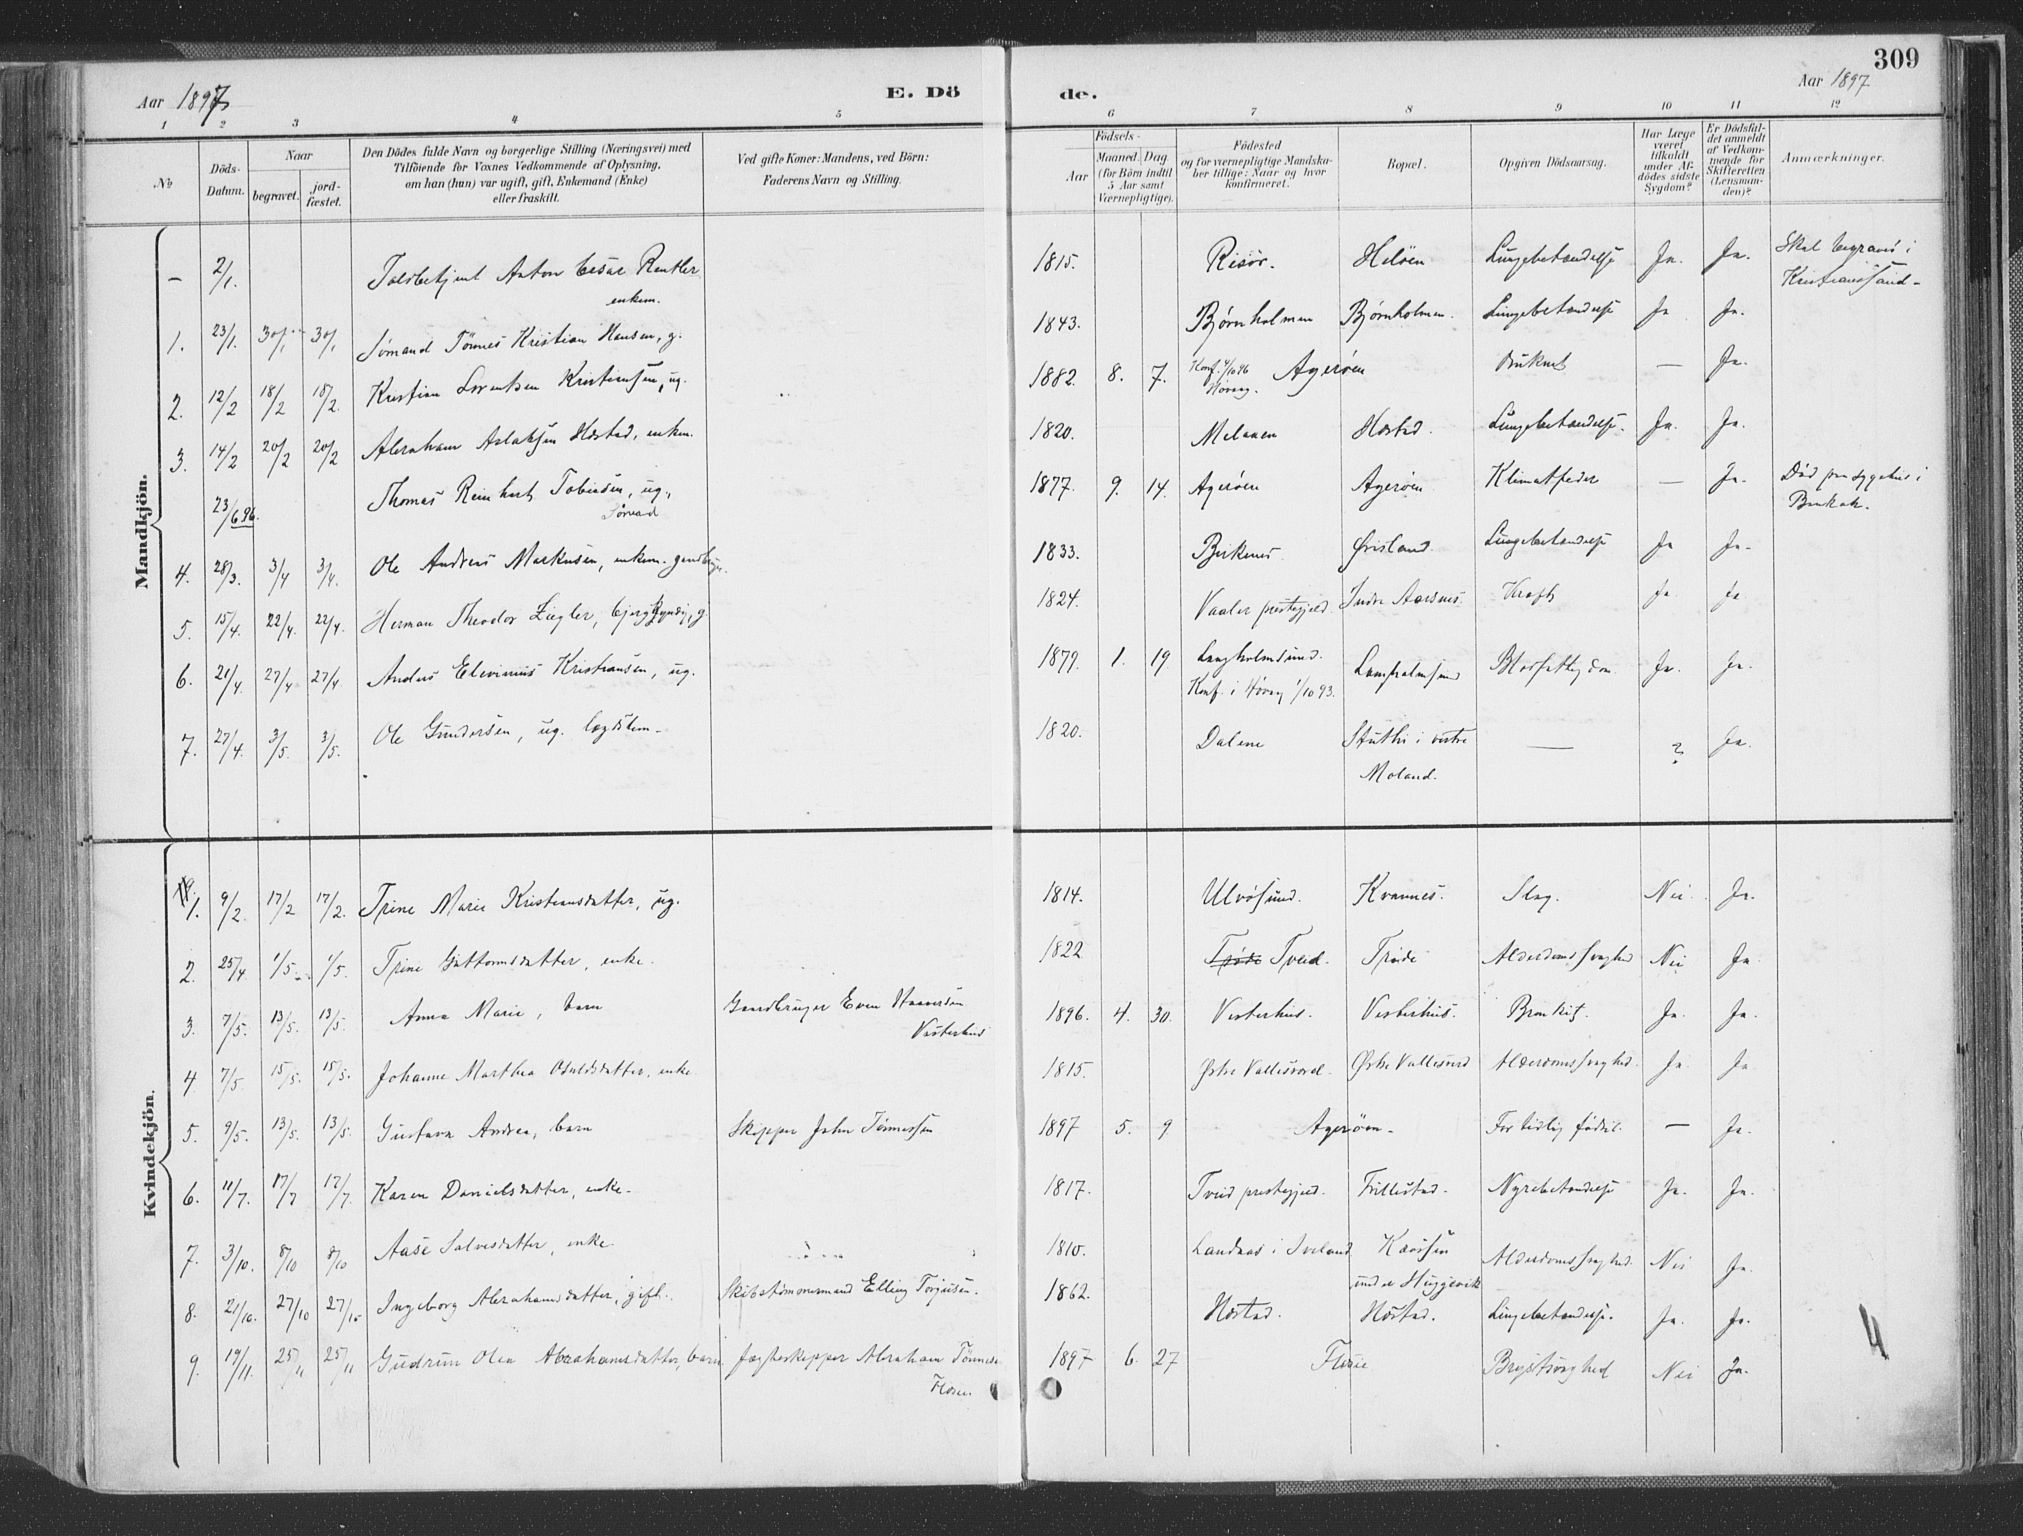 309
Aar 1897
E. Dö
de.
Aar 1897
1 2 3 4 5 6 7 8 9 10 11 12
No
Döds-
Datum.
Naar
begravet.
jord-
fæstet.
Den Dödes fulde Navn og borgerlige Stilling (Næringsvei) med
Tilföiende for Voxnes Vedkommende af Oplysning,
om han (hun) var ugift, gift, Enkemand (Enke)
eller fraskilt.
Ved gifte Koner: Mandens, ved Börn:
Faderens Navn og Stilling.
Födsels-
Aar
Maaned. Dag
(for Börn indtil
5 Aar samt
Værnepligtige).
Födested
og for værnepligtige Mandska-
ber tillige: Naar og hvor
konfirmeret.
Bopæl.
Opgiven Dödsaarsag.
Har Læge
været
tilkaldt
under Af-
dödes sidste
Sygdom?
Er Dödsfal-
det anmeldt
af Vedkom-
mende for
Skifteretten
(Lensman-
den)?
Anmærkninger.
Mandkjön.
– 2/1. Toldbetjent Anton Cesar Rentler enkem. 1815. Risör. Helöen Lungebetændelse Ja. Ja. Skal begraves i
Kristianssand –
1. 23/1. 30/1 30/1 Sömand Tönnes Kristian Hansen, g. 1843. Bjørnholmen Bjørnholmen. Lungebetændelse Ja Ja.
2. 12/2 18/2 18/2. Kristian Lorentsen Kristiansen, ug. 1882. 8. 7. Konf. 4/10 96 Høvåg. Agerøen Druknet — Ja.
3. 14/2 20/2 20/2 Abraham Aslaksen Hæstad, enkem. 1820. Hæstad. Lungebetændelse. Ja. Ja.
23/6 96. Thomas Reinhart Tobiasen, ug., Sömand 1877. 9. 14. Agerøen Agerøen Klimatfeber — Ja. Död paa sygehus i
4. 28/3. 3/4 3/4. Ole Andreas Markusen, enkem. gaardbruger. 1833. Birkenes Øvisland. Lungebetændelse Ja Ja-
5. 15/4. 22/4. 22/4. Herman Theodor Ziegler, bjergkyndig, g. 1824. Vaaler prestegjeld. Indre Aarsnes. Kræft Ja. Ja
6. 21/4. 27/4 27/4 Anders Elevinius Kristiansen, ug. 1879. 1. 19 Langholmsund.
Konf. i Høvåg 1/10 93. Langholmsund Ja. Ja.
7. 27/4. 3/5. 3/5. Ole Gundersen, ug. lægdslem. 1820. Dalene i vestre
Moland. — ? Ja.
Kvindekjön.
1. 9/2. 17/2 17/2. Trine Marie Kristiansdatter, ug. 1814. Ulvösund. Kvannes. Slag. Nei. Ja.
2. 25/4 1/5. 1/5. Trine Guttormsdatter, enke. 1822 Trøde Tveid. Trøde Alderdomssvaghed Nei Ja
3. 7/5. 13/5. 13/5 Anna Marie, barn Gaardbruger Even Vesterhus 1896. 4. 30. Vesterhus. Vesterhus. Bronkit. Ja. Ja.
4 7/5. 15/5. 15/5. Johanne Marthea Osuldsdatter, enke. 1815. Østre Vallesverd. Østre Vallesverd Alderdomssvaghed. Ja. Ja
5. 9/5. 13/5. 13/5. Gustava Andrea, barn Skipper John Tönnessen 1897 5. 9 Agerøen. For tidlig födsel. — Ja.
6. 11/7. 17/7 17/7. Karen Danielsdatter, enke. 1817. Tveid prestegjeld. Frillestad. Nyrebetændelse Ja. Ja.
7. 3/10. 8/10 8/10 Aase Salvesdatter, enke. 1810. Landaas i Iveland
under Alderdomssvaghed. Nei Ja.
8. 21/10. 27/10 27/10 Ingeborg Abrahamsdatter, gift. Skibstømmermand Elling Torjusen. 1862. Hæstad. Hæstad. Lungebetændelse. Ja. Ja.
9. 19/11. 25/11 25/11 Gudrun Olea Abrahamsdatter, barn Jagteskipper Abraham 1897 6. 27 Brystsvaghed Nei Ja.
4